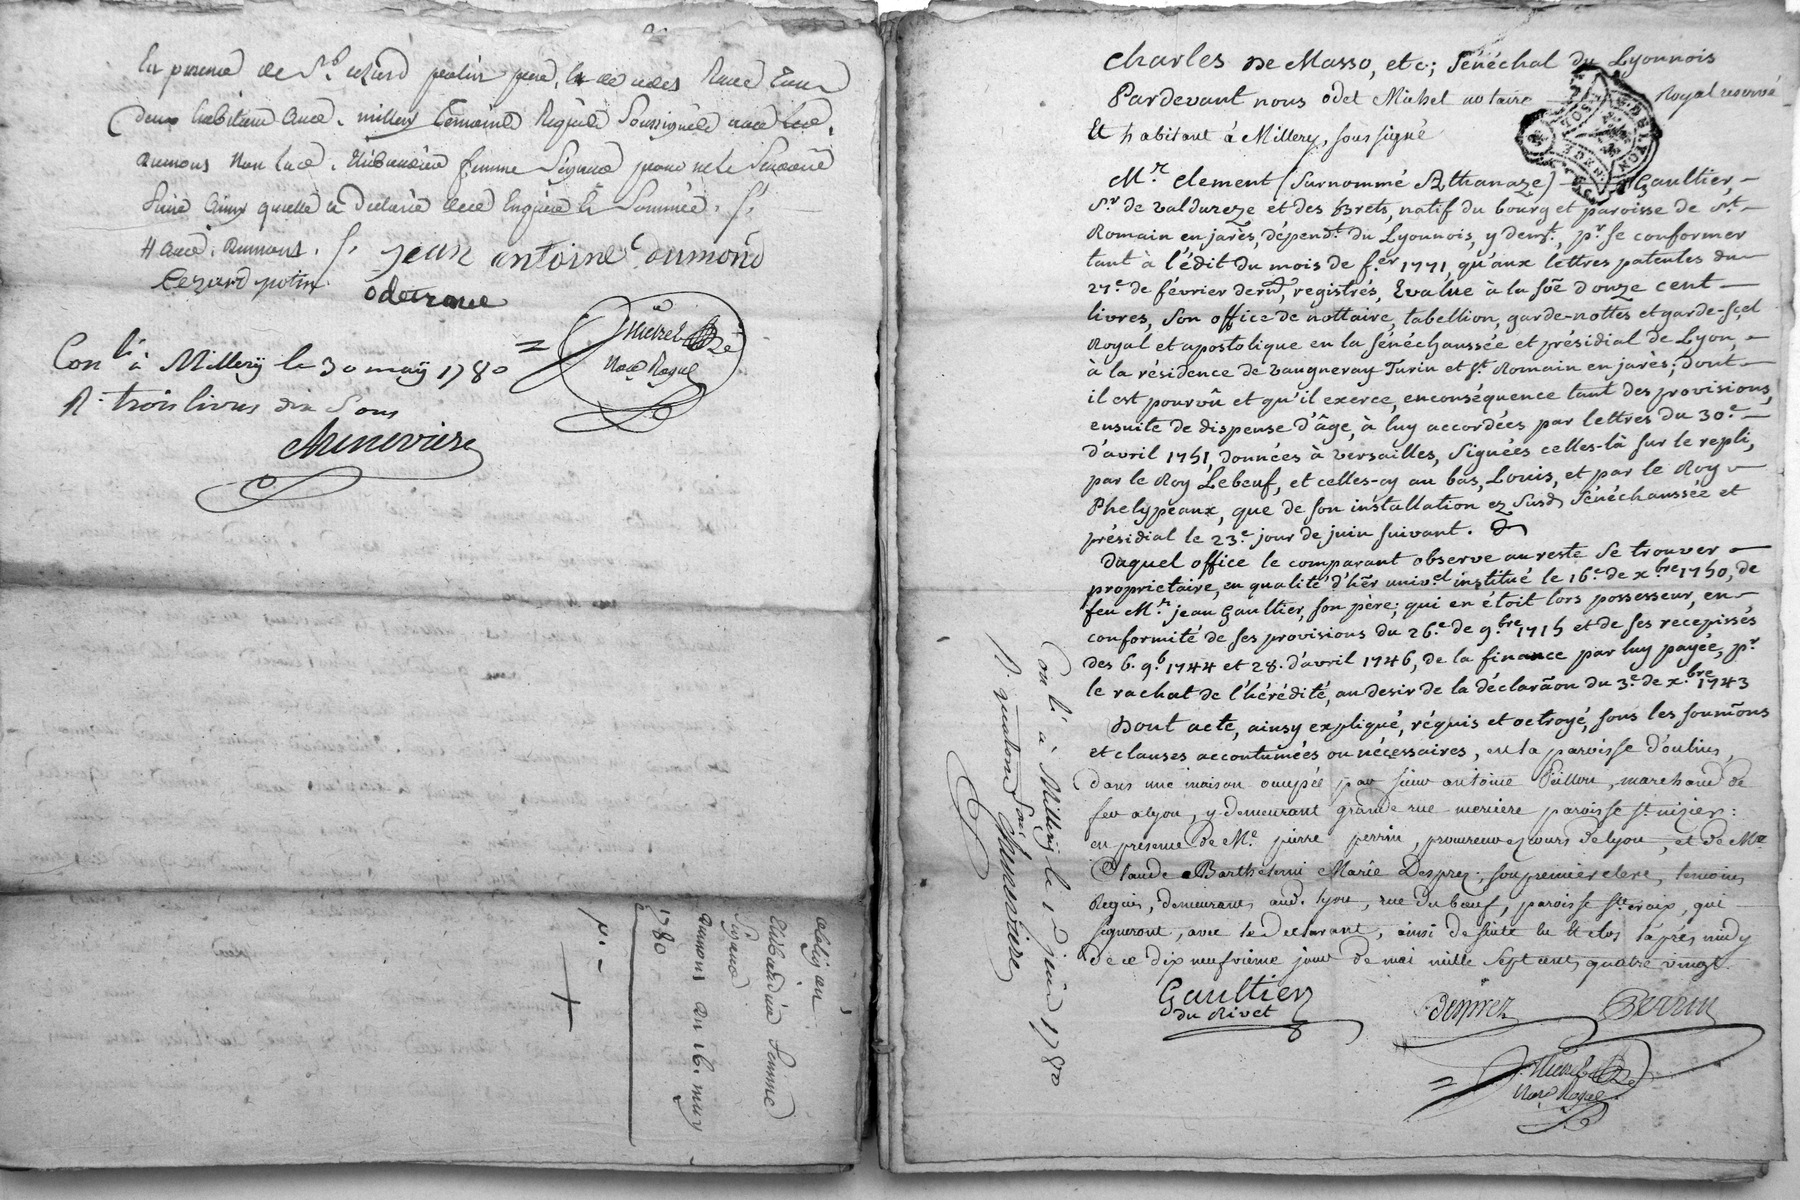 la presence de Sr. Cezard potin pere, &
deux habitans dud. millery temoins Requis Soussignés avec led.
dumons non lad. thibaudier femme Sigaud pour ne le Scavoir
faire ainsy quelle a declaré de ce Enquise & Sommée. /.
dumons. /. jean antoine dumond
Cezard potin
Conlé. à Millery le 30 may 1780
R. trois livres dix Sous
Michel
Nore Royal
Chenevière
obligaõn
thibaudier femme
Sigaud
Dumons du 16. may
1780
Charles de Masso, etc; Sénéchal du Lyonnois
Pardevant nous odet Michel notaire Royal reservé
Et habitant à Millery, soussigné
Mr. Clement (surnommé Athanaze) Gaultier,
Sr. de valdureze et des Brets, natif du bourg et paroisse de St.
Romain en jarès, dépendt. du Lyonnois, y demt., pr. se conformer
tant à l'édit du mois de fer. 1771, qu'aux lettres patentes du
27e. de février dernr, registrés, Evalue à la sõe d'ouze cent
livres, son office de nottaire, tabellion, garde-nottes et garde-scel
Royal et apostolique en la sénéchaussée et présidial de Lyon,
à la résidence de vaugneray Turin et St. Romain en jarès; dont
il est pourvû et qu'il exerce, en conséquence tant des provisions,
ensuite de dispense d'âge, à luy accordées par lettres du 30e.
d'avril 1751, données à versailles, signées celles-là sur le repli,
par le Roy Lebeuf, et celles-cy au bas, Louis, et par le Roy
Phelypeaux, que de son installation ez susd. sénéchaussée et
présidial le 23e. jour de juin suivant.
Daquel office le comparant observe au reste se trouver
proprietaire, en qualité d'hẽr univel institué le 16e. de xbre 1750, de
feu Mr. jean Gaultier, son père; qui en étoit lors possesseur, en
conformité de ses provisions du 26e. de 9bre 1715 et de ses recepissés
des 6. 9b 1744 et 28. d'avril 1746, de la finance par luy payée, pr.
le rachat de l'hérédité, au desir de la déclarãon du 3e. de xbre 1743
Dont acte, ainsy expliqué, réquis et octroyé, sous les soumõns
et clauses accoutumées ou nécessaires, en la paroisse d'oulins,
dans une maison occupée par sieur antoine Paillou, marchand de
fer a lyon, y demeurant grande rue merciere paroisse st. nizier:
en presence de Me. pierre perrin, procureur ez cours de lyon, et de Me
Claude Barthelemi Marie Desprez, son premier clerc, temoins
Requis, demeurans aud. lyon, rue du bœuf, paroisse ste croix, qui
signeront, avec le declarant, ainsi de suite lu et clos l'après midy
de ce dix neufvieme jour de mai mille sept cent quatre vingt.
Gaultier
du Rivet
Desprez
Perrin
Michel
Nore Royal
Conlé à Millery le 1 juin 1780
R. quatorze sous
Chenevière